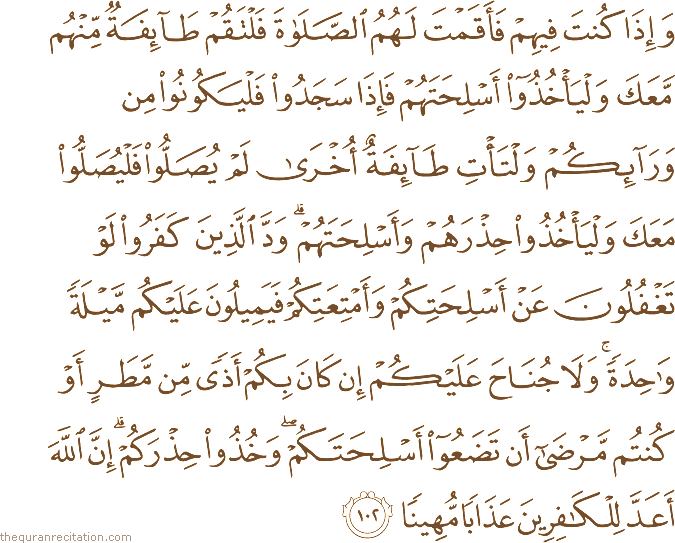 وَإِذَا كُنتَ فِيهِمْ فَأَقَمْتَ لَهُمُ ٱلصَّلَوٰةَ فَلْتَقُمْ طَآئِفَةٌ مِّنْهُم
مَّعَكَ وَلْيَأْخُذُوٓا۟ أَسْلِحَتَهُمْ فَإِذَا سَجَدُوا۟ فَلْيَكُونُوا۟ مِن
وَرَآئِكُمْ وَلْتَأْتِ طَآئِفَةٌ أُخْرَىٰ لَمْ يُصَلُّوا۟ فَلْيُصَلُّوا۟
مَعَكَ وَلْيَأْخُذُوا۟ حِذْرَهُمْ وَأَسْلِحَتَهُمْ ۗ وَدَّ ٱلَّذِينَ كَفَرُوا۟ لَوْ
تَغْفُلُونَ عَنْ أَسْلِحَتِكُمْ وَأَمْتِعَتِكُمْ فَيَمِيلُونَ عَلَيْكُم مَّيْلَةً
وَٰحِدَةً ۚ وَلَا جُنَاحَ عَلَيْكُمْ إِن كَانَ بِكُمْ أَذًى مِّن مَّطَرٍ أَوْ
كُنتُم مَّرْضَىٰٓ أَن تَضَعُوٓا۟ أَسْلِحَتَكُمْ ۖ وَخُذُوا۟ حِذْرَكُمْ ۗ إِنَّ ٱللَّهَ
أَعَدَّ لِلْكَـٰفِرِينَ عَذَابًا مُّهِينًا ١٠٢
thequranrecitation.com